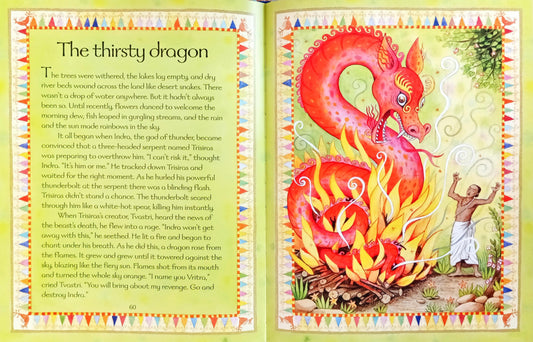 The thirsty dragon
The trees were withered, the lakes lay empty, and dry
river beds wound across the land like desert snakes. There
wasn't a drop of water anywhere. But it hadn't always
been so. Until recently, flowers danced to welcome the
morning dew, fish leaped in gurgling streams, and the rain
and the sun made rainbows in the sky.
It all began when Indra, the god of thunder, became
convinced that a three-headed serpent named Trisiras
was preparing to overthrow him. "I can't risk it," thought
Indra. "It's him or me." He tracked down Trisiras and
waited for the right moment. As he hurled his powerful
thunderbolt at the serpent there was a blinding flash.
Trisiras didn't stand a chance. The thunderbolt seared
through him like a white-hot spear, killing him instantly.
When Trisiras's creator, Tvastri, heard the news of
the beast's death, he flew into a rage. "Indra won't get
away with this," he seethed. He lit a fire and began to
chant under his breath. As he did this, a dragon rose from
the flames. It grew and grew until it towered against the
sky, blazing like the fiery sun. Flames shot from its mouth
and turned the whole sky orange. "I name you Vritra,"
cried Tvastri. "You will bring about my revenge. Go and
destroy Indra."
60